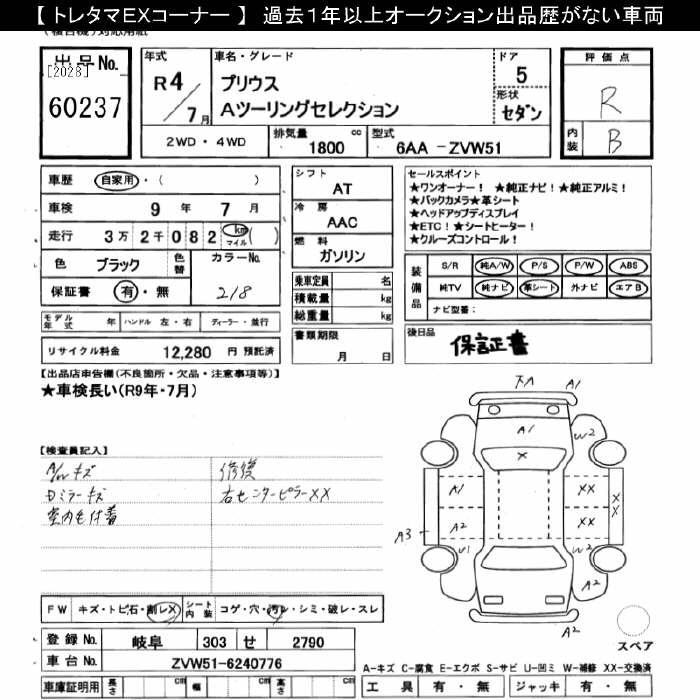 【 トレタマEXコーナー 】 過去1年以上オークション出品歴がない車両
出品No.
[2028]
60237
年式
R4/7月
車名・グレード
プリウス
Aツーリングセレクション
ドア
5
形状
セダン
評価点
R
内装
B
2WD・4WD
排気量 1800 cc
型式 6AA -ZVW51
車歴 自家用・( )
車検 9年 7月
走行 3万 2千 0 8 2 km マイル ( )
色 ブラック 色替
カラーNo. 218
保証書 有・無
モデル年式 年 ハンドル 左・右 ディーラー・並行
リサイクル料金 12,280 円 預託済
シフト
AT
冷房
AAC
燃料
ガソリン
乗車定員 名
積載量 kg
総重量 kg
書類期限
月 日
セールスポイント
★ワンオーナー！ ★純正ナビ！★純正アルミ！
★バックカメラ★革シート
★ヘッドアップディスプレイ
★ETC！★シートヒーター！
★クルーズコントロール！
装備品
S/R 純A/W P/S P/W ABS
純TV 純ナビ 革シート 外ナビ エアB
ナビ型番：
後日品
保証書
【出品店申告欄(不良箇所・欠品・注意事項等)】
★車検長い(R9年・7月)
【検査員記入】
A/W キズ
Dミラーキズ
室内毛付着
修復
右センターピラーXX
下A
A1
A1
W2
X
A1
XX
XX
A2
XX
A3
U1
W2
A2
A2
スペア
FW キズ・トビ石・割レX
シート内装 コゲ・穴・汚レ・シミ・破レ・スレ
登録No. 岐阜 303 せ 2790
車台No. ZVW51-6240776
車庫証明用 長さ cm 幅 cm 高さ cm
A-キズ C-腐食 E-エクボ S-サビ U-凹ミ W-補修 XX-交換済
工具 有・無 ジャッキ 有・無